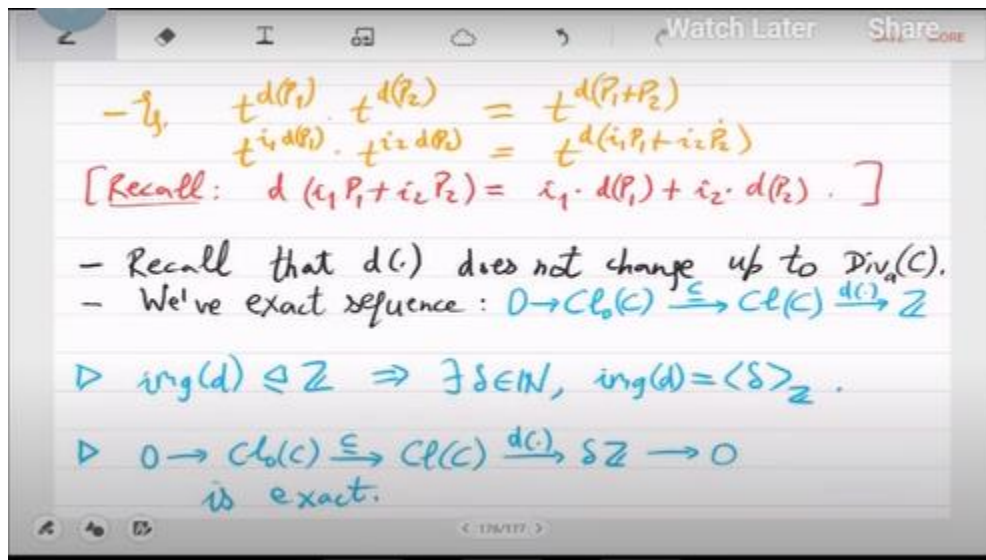 Watch Later Share
MORE
- Eg. t^{d(P₁)} · t^{d(P₂)} = t^{d(P₁+P₂)}
t^{i₁ d(P₁)} · t^{i₂ d(P₂)} = t^{d(i₁P₁+i₂P₂)}
[Recall: d(i₁P₁+i₂P₂) = i₁·d(P₁) + i₂·d(P₂). ]
- Recall that d(·) does not change up to Divₐ(C).
- We've exact sequence: 0→Cl₀(C) ⊆→ Cl(C) d(·)→ ℤ
▷ img(d) ⊴ ℤ ⇒ ∃δ∈ℕ, img(d)=<δ>_ℤ.
▷ 0→ Cl₀(C) ⊆→ Cl(C) d(·)→ δℤ → 0
is exact.
< 176/177 >